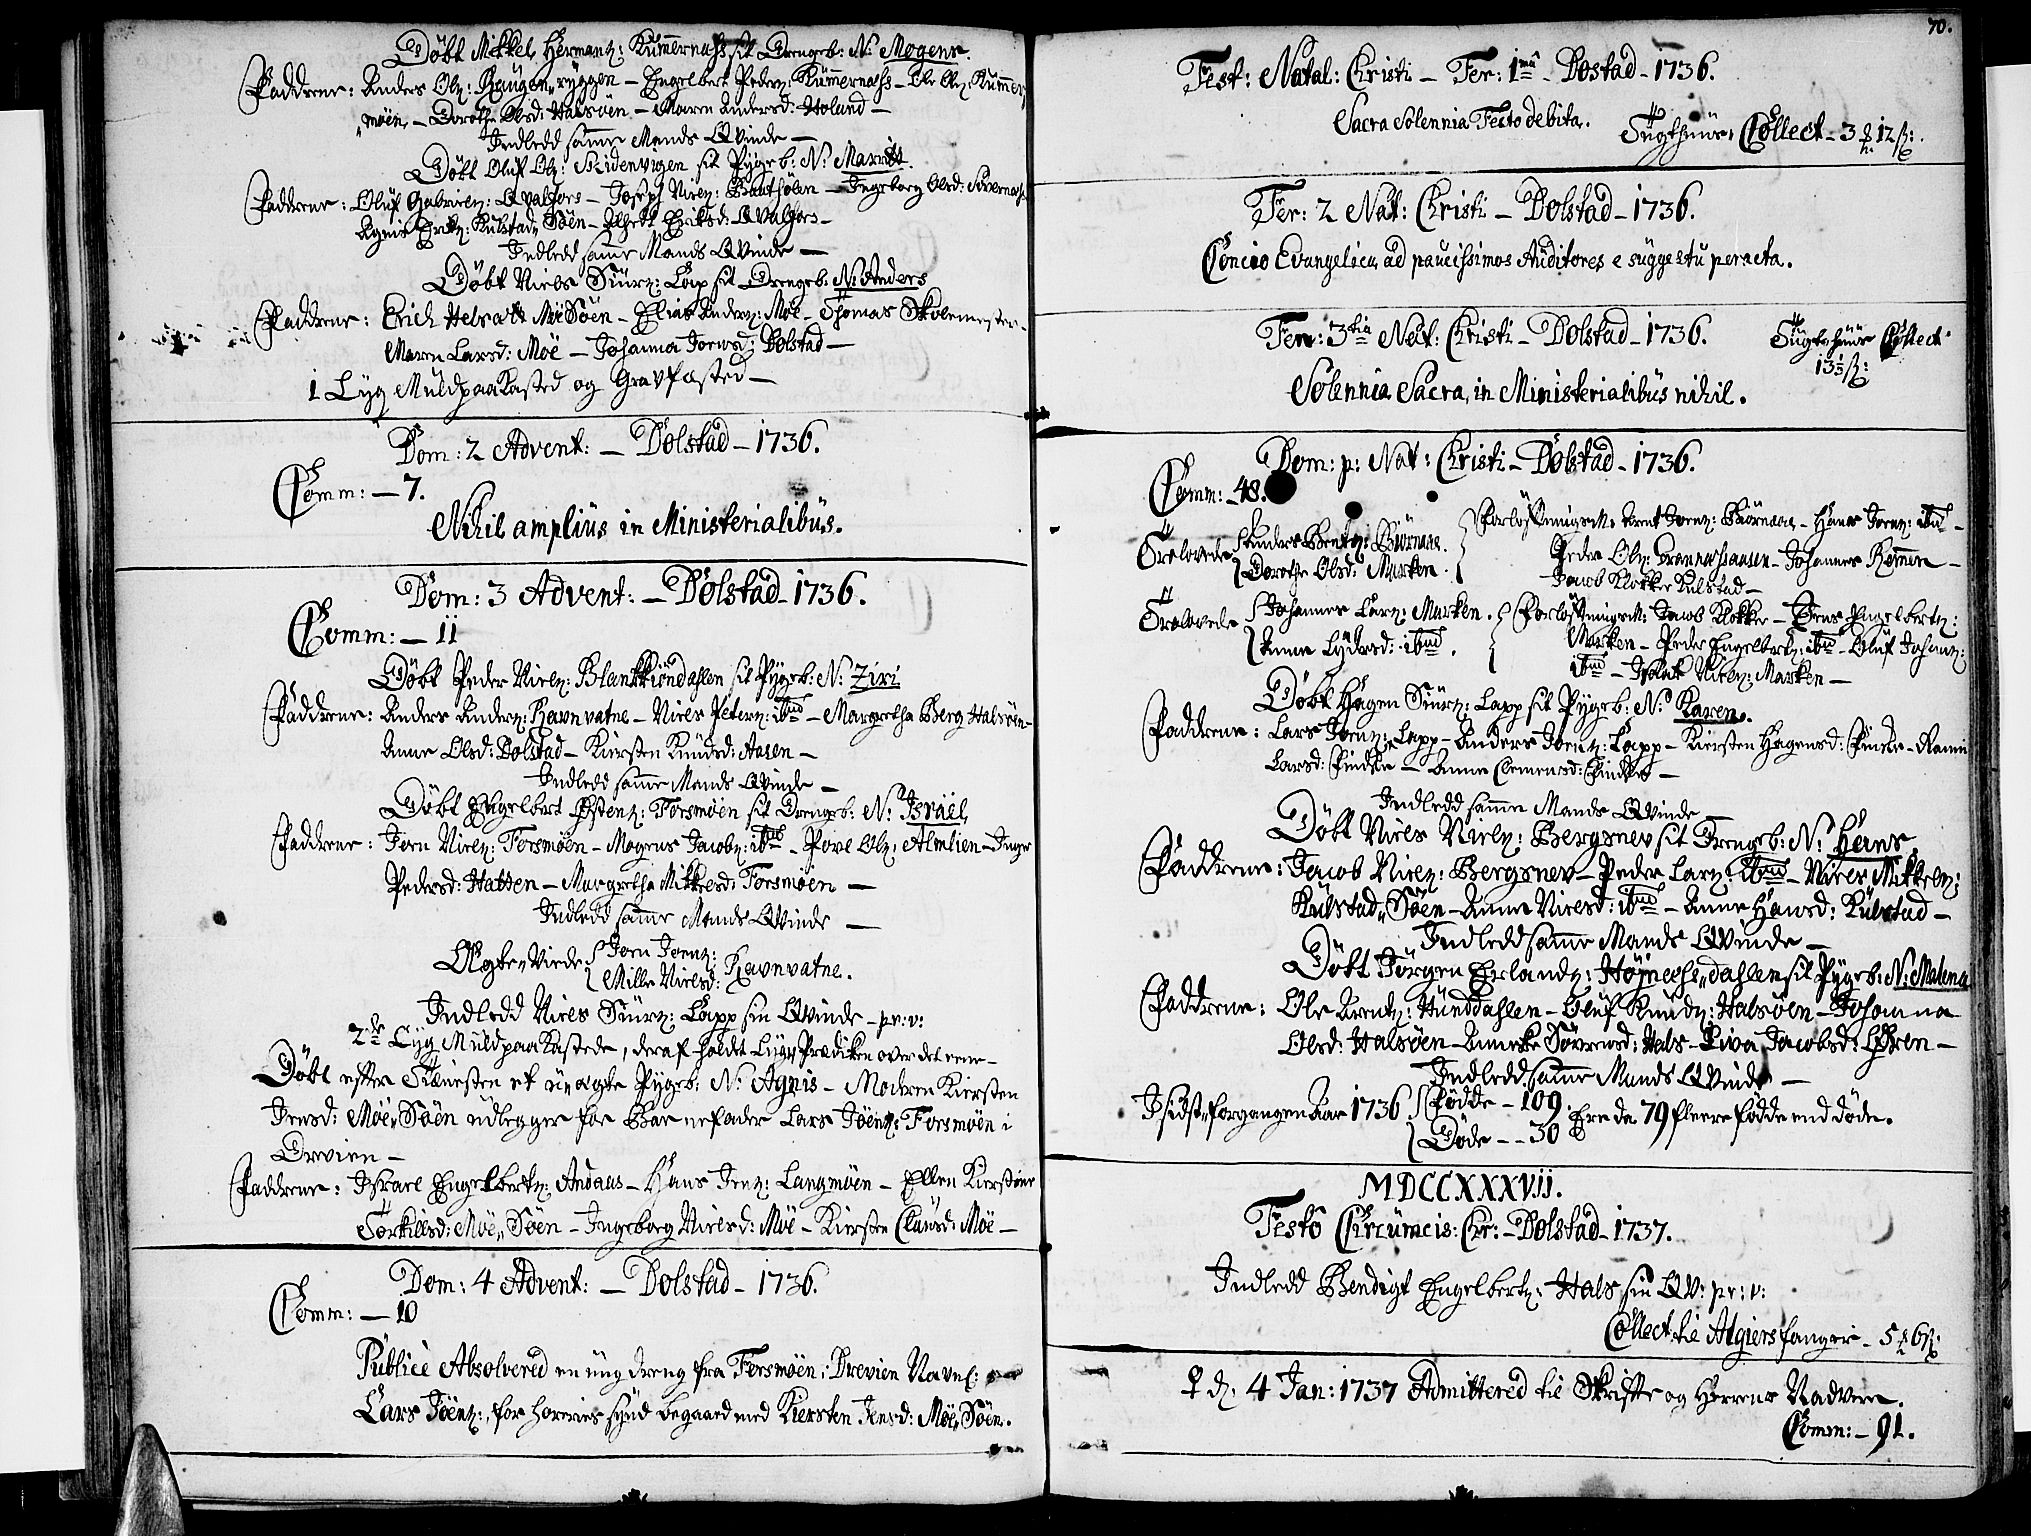 Döbt Mikkel Hermanz: Kummernæss sit Drengeb: N: Mogens.
Faddrene: Anders Olz: Haugen, ryggen – Engelbert Pederz: Kummernæss – Ole Olz: Kummer,
„möen, – Dorothe Olsd: Halsöen – Maren Andersd: Holand –
Indledd samme Mands Qvinde –
Döbt Oluf Olz: Skidenvigen sit Pigeb: N: Maritt.
Faddrene: Oluf Gabrielz: Qvalfors – Joseph Nielz: – Ingeborg Olsd:
Agnis Erikz: Kulstad„ Söen – Erichsd: Qvalfors –
Indledd samme Mands Qvinde –
Döbt Niels Siurz: Lap sit Drengeb: N: Anders
Faddrene: Erich Moe Söen – Elias Anderz: Moe – Thomas Skolemester –
Maren Larsd: Moe – Johanna Joensd: Dolstad –
1 Lyg Muldpaakasted og Gravfæsted –
Dom: 2 Advent: – Dolstad – 1736.
Comm: – 7.
Nihil amplius in Ministerialibus.
Dom: 3 Advent: – Dolstad – 1736.
Comm: – 11
Döbt Peder Nielz: Blankkiöndahlen sit Pigeb: N: Ziri
Faddrene: Anders Anderz: Ravnvatne – Niels Peterz: ibid – Margretha Berg Halsöen –
Anne Olsd: Dolstad – Kiersten Knudsd: Aasen –
Indledd samme Mands Qvinde –
Döbt Engelbert Östenz: Forsmöen sit Drengeb: N: Israel,
Faddrene: Joen Nielz: Forsmöen – Mogens Jacobz: ibid – Povel Olz: Almlien – Inger
Pedersd: Hatten – Margretha Mikkelsd: Forsmöen –
Indledd samme Mands Qvinde –
Ægte„ Viede { Joen Joenz:
Mille Nielsd: Ravnvatne.
Indledd Niels Siurz: Lapp sin Qvinde – pr: v:
2de Lyg Muldpaakastede, deraf holdet Lyg, Prædiken over det eene –
Döbt efter Tienesten et u-ægte Pigeb: N: Agnis – Moderen Kiersten
Jensd: Moe„ Söen udlegger for Barnefader Lars Joenz: Forsmöen i
Drevien –
Faddrene: Israel Engelbertz: Andaas – Hans Jenz: Langmöen – Ellen Kierstine
Torkildsd: Moe„ Söen – Ingeborg Nielsd: Moe – Kiersten Clausd: Moe –
Dom: 4 Advent: – Dolstad – 1736.
Comm: – 10
Publice Absolvered en ung dreng fra Forsmöen i Drevien Navnl:
Lars Joenz:, for horeries synd begaaed med Kiersten Jensd: Moe„ Söen.
70.
Fest: Natal: Christi – Fer: 1ma – Dolstad – 1736.
Sacra Solennia Festo debita.
Tugthuus, Collect – 3 12 ß:
Fer: 2 Nat: Christi – Dolstad – 1736.
Concio Evangelica ad paucissimos Auditores e suggestu peracta.
Fer: 3tia Nat: Christi – Dolstad – 1736.
Tugthuus Collect
13 ß:
Solennia Sacra, in Ministerialibus nihil.
Dom: p: Nat: Christi – Dolstad – 1736.
Comm: – 48.
Trolovede { Anders Bentz: Biörnaae.
Dorothe Olsd: Marken.
Forlöftningsm: Arent Joenz: Biörnaae – Hans Joenz: ibid –
Peder Olz: – Johannes Remmen –
Jacob Klokker Kulstad –
Trolovede { Johannes Larz: Marken.
Anne Lydersd: ibid.
Forlöftningsm: Jacob Klokker – Jens Engelbertz:
Marken – Peder Engelbertz: ibid – Oluf Johanz:
ibid – Nielz: Marken –
Döbt Hagen Siurz: Lapp sit Pigeb: N: Karen.
Faddrene: Lars Joenz: Lapp – Anders Joenz: Lapp – Kiersten Hagensd:
Larsd: – Anne Clemensd: –
Indledd samme Mands Qvinde –
Döbt Niels Nielz: Bergsnev sit Drengeb: N: Hans.
Faddrene: Jacob Nielz: Bergsnev – Peder Larz: ibid – Niels Mikkelz:
Kulstad„ Söen – Anne Nielsd: ibid – Anne Hansd: Kulstad –
Indledd samme Mands Qvinde –
Döbt Jörgen Erlandz: sit Pigeb: N: Malena
Faddrene: Ole Arentz: Hunddahlen – Oluf Knudz: Halsöen – Johanna
Olsd: Halsöen – Anneke Sörrensd: Hals – Liva Jacobsd: –
Indledd samme Mands Qvinde –
I sidst„ forgangen Aar 1736 { Födde – 109.
Döde – – 30
Ere da 79 fleere födde end döde.
MDCCXXXVII.
Festo Circumcis: Chr: – Dolstad – 1737.
Indledd Bendigt Engelbertz: Hals sin Qv: pr: v:
Collect til Algiers fanger – 5 6 ß:
♀ d. 4 Jan: 1737 Admittered til Skrifte og Herrens Nadvere.
Comm: – 91.